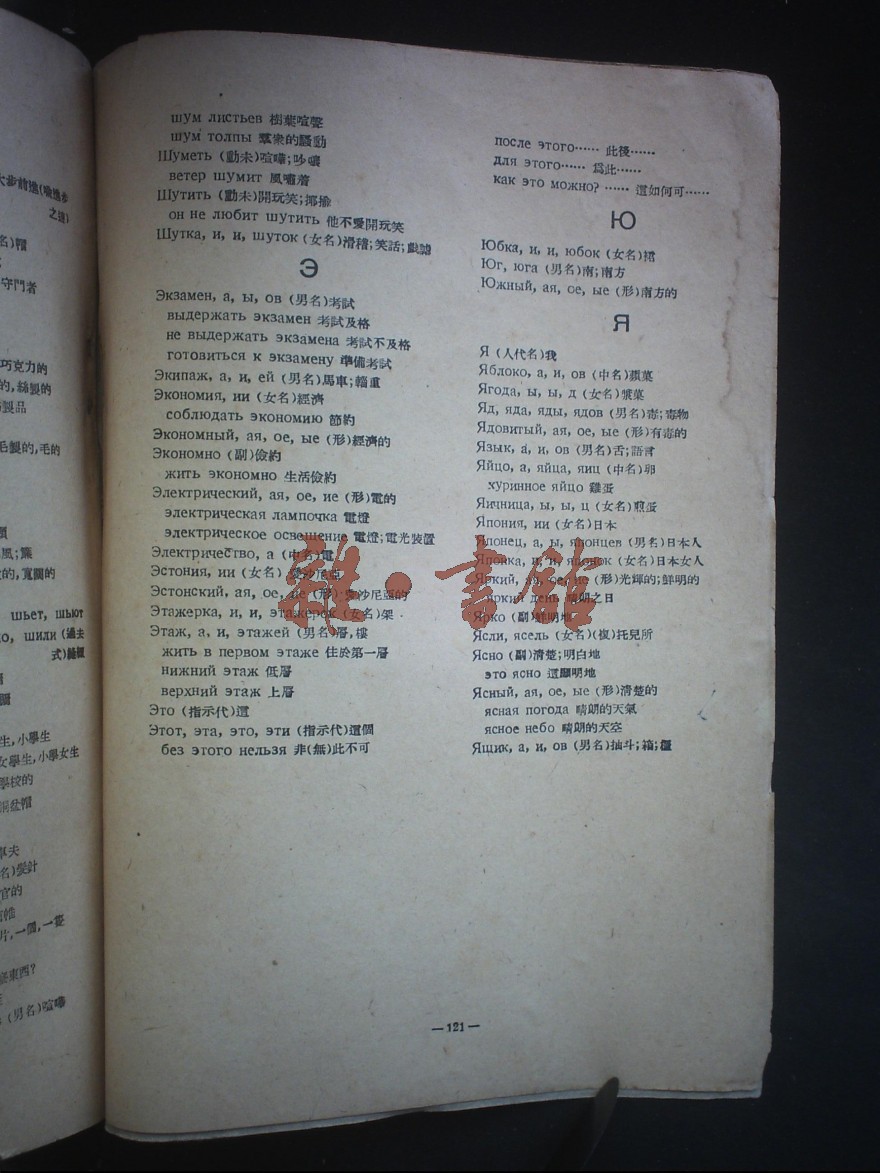 大步前進(喚進步
之迷)
名)帽
守門者
巧克力的
的,絲製的
製品
毛製的,毛的
風;簾
的,寬闊的
шьет, шьют
шили (過去
生,小學生
女學生,小學女生
學校的
銅盔帽
車夫
名)髮計
官的
片,一個,一套
東西?
(男名)喧嘩
шум листьев 樹葉喧聲
шум толпы 羣衆的騷動
Шуметь (動未)喧嘩;吵嚷
ветер шумит 風嘯着
Шутить (動未)開玩笑;揶揄
он не любит шутить 他不愛開玩笑
Шутка, и, и, шуток (女名)滑稽;笑話;戲謔
Э
Экзамен, а, ы, ов (男名)考試
выдержать экзамен 考試及格
не выдержать экзамена 考試不及格
готовиться к экзамену 準備考試
Экипаж, а, и, ей (男名)馬車;輜重
Экономия, ии (女名)經濟
соблюдать экономию 節約
Экономный, ая, ое, ые (形)經濟的
Экономно (副)儉約
жить экономно 生活儉約
Электрический, ая, ое, ие (形)電的
электрическая лампочка 電燈
электрическое освещение 電燈;電光裝置
Электричество, а (中名)電
Эстония, ии (女名)愛沙尼亞
Эстонский, ая, ое, ие (形)愛沙尼亞的
Этажерка, и, и, этажерок (女名)架
Этаж, а, и, этажей (男名)層,樓
жить в первом этаже 住於第一層
нижний этаж 低層
верхний этаж 上層
Это (指示代)這
Этот, эта, это, эти (指示代)這個
без этого нельзя 非(無)此不可
после этого…… 此後……
для этого…… 爲此……
как это можно? …… 這如何可……
Ю
Юбка, и, и, юбок (女名)裙
Юг, юга (男名)南;南方
Южный, ая, ое, ые (形)南方的
Я
Я (人代名)我
Яблоко, а, и, ов (中名)蘋菓
Ягода, ы, ы, д (女名)漿菓
Яд, яда, яды, ядов (男名)毒;毒物
Ядовитый, ая, ое, ые (形)有毒的
Язык, а, и, ов (男名)舌;語言
Яйцо, а, яйца, яиц (中名)卵
хуринное яйцо 雞蛋
Яичница, ы, ы, ц (女名)煎蛋
Япония, ии (女名)日本
Японец, а, ы, японцев (男名)日本人
Японка, и, и, японок (女名)日本女人
Яркий, ая, ое, ие (形)光輝的;鮮明的
яркий день 晴朗之日
Ярко (副)鮮明地
Ясли, ясель (女名)(複)托兒所
Ясно (副)清楚;明白地
это ясно 這顯明地
Ясный, ая, ое, ые (形)清楚的
ясная погода 晴朗的天氣
ясное небо 晴朗的天空
Ящик, а, и, ов (男名)抽斗;箱;櫃
—121—